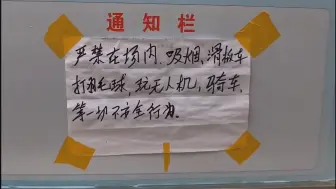 通知栏
严禁在场内.吸烟.滑板车
打羽毛球,玩无人机,骑车,
等一切不安全行为.